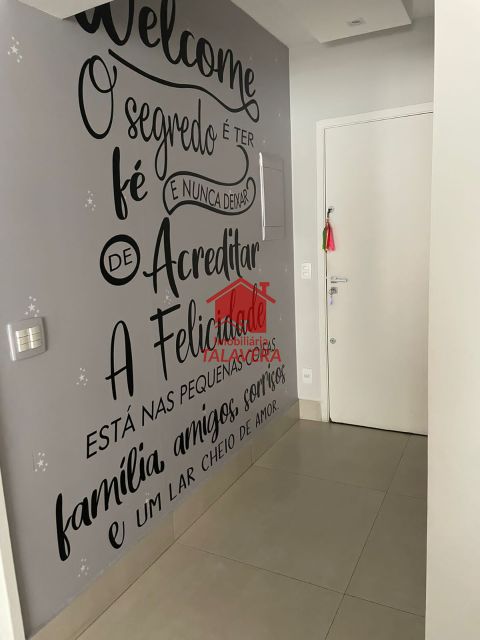 Welcome
O segredo É TER
fé E NUNCA DEIXAR
DE Acreditar
A Felicidade
Imobiliária
TALAVERA
ESTÁ NAS PEQUENAS COISAS
família, amigos, sorrisos
e UM LAR CHEIO DE AMOR.